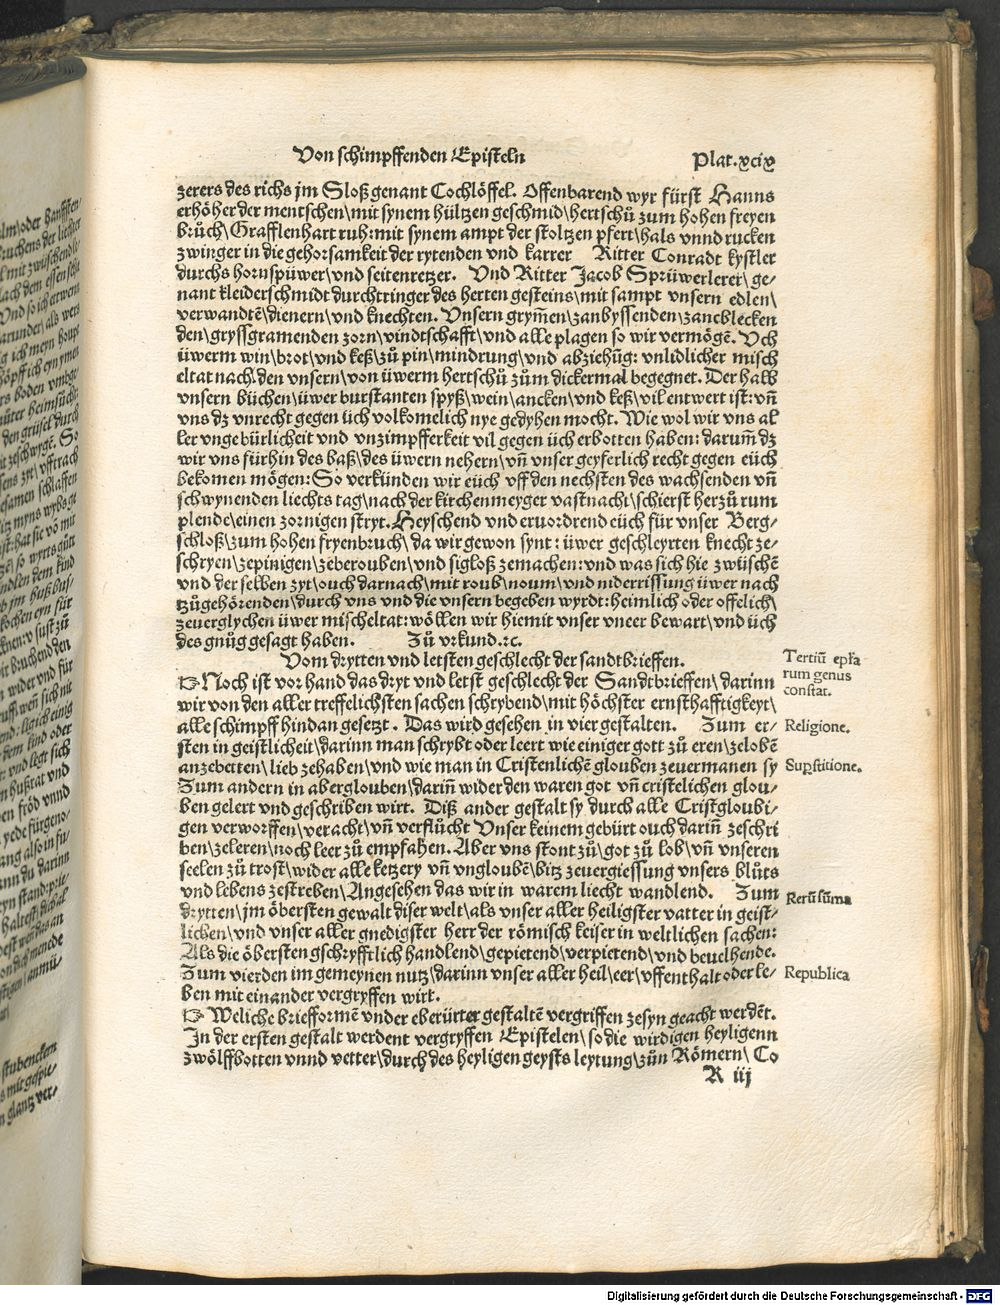 Von schimpffenden Episteln
Plat.xcix
zerers des richs jm Sloß genant Cochlöffel. Offenbarend wyr fürst Hanns
erhöher der mentschen\mit synem hültzen geschmid\hertschů zum hohen freyen
brůch\Grafflenhart ruh:mit synem ampt der stoltzen pfert\hals vnnd rucken
zwinger in die gehorsamkeit der rytenden vnd karrer Ritter Conradt kystler
durchs hornspüwer\vnd seitenretzer. Vnd Ritter Jacob Sprüwerlerer\ge-
nant kleiderschmidt durchtringer des herten gesteins\mit sampt vnsern edlen\
verwandtē\dienern\vnd knechten. Vnsern grym̄en\zanbyssenden\zancblecken
den\gryssgramenden zorn\vindtschafft\vnd alle plagen so wir vermögē. Vch
üwerm win\brot\vnd keß\zů pin\mindrung\vnd abziehüg: vnlidlicher misch
eltat nach den vnsern\von üwerm hertschů zům dickermal begegnet. Der halb
vnsern büchen\üwer burstanten spyß\wein\ancken\vnd keß\vil entwert ist: vn̄
vns dz vnrecht gegen üch volkomelich nye gedyhen mocht. Wie wol wir vns al
ler vngebürlicheit vnd vnzimpfferkeit vil gegen üch erbotten haben: darum̄ dz
wir vns fürhin des baß\des üwern nehern\vn̄ vnser geyferlich recht gegen eüch
bekomen mögen: So verkünden wir eüch vff den nechsten des wachsenden vn̄
schwynenden liechts tag\nach der kirchenmeyger vastnacht\schierst herzů rum
plende\einen zornigen stryt. Heyschend vnd eruordrend eüch für vnser Berg-
schloß\zum hohen fryenbruch\da wir gewon synt: üwer geschleyrten knecht ze-
schryen\zepinigen\zeberouben\vnd sigloß zemachen: vnd was sich hie zwüschē
vnd der selben zyt\ouch darnach\mit roub\noum\vnd niderrissung üwer nach
tzůgehörenden\durch vns vnd die vnsern begeben wyrdt: heimlich oder offelich\
zeuerglychen üwer mischeltat: wöllen wir hiemit vnser vneer bewart\vnd üch
des gnůg gesagt haben. Zů vrkund.ꝛc.
Vom drytten vnd letsten geschlecht der sandtbrieffen.
☞ Noch ist vor hand das dryt vnd letst geschlecht der Sandtbrieffen\darinn
wir von den aller treffelichsten sachen schrybend\mit höchster ernsthafftigkeyt\
alle schimpff hindan gesetzt. Das wird gesehen in vier gestalten. Zum er-
sten in geistlicheit\darinn man schrybt oder leert wie einiger gott zů eren\zelobē
anzebetten\lieb zehaben\vnd wie man in Cristenlichē glouben zeuermanen sy
Zum andern in aberglouben\darin̄ wider den waren got vn̄ cristelichen glou-
ben gelert vnd geschriben wirt. Diß ander gestalt sy durch alle Cristgloubi-
gen verworffen\veracht\vn̄ verflůcht Vnser keinem gebürt ouch darin̄ zeschri
ben\zeleren\noch leer zů empfahen. Aber vns stont zů\got zů lob\vn̄ vnseren
seelen zů trost\wider alle ketzery vn̄ vngloubē\bitz zeuergiessung vnsers blůts
vnd lebens zestreben\Angesehen das wir in warem liecht wandlend. Zum
drytten\jm öbersten gewalt diser welt\als vnser aller heiligster vatter in geist-
lichen\vnd vnser aller gnedigster herr der römisch keiser in weltlichen sachen:
Als die öbersten gschryfftlich handlend\gepietend\verpietend\vnd beuelhende.
Zum vierden im gemeynen nutz\darinn vnser aller heil\eer\vffenthalt oder le-
ben mit einander vergryffen wirt.
☞ Weliche briefformē vnder eberürter gestaltē vergriffen zesyn geacht werdēt.
In der ersten gestalt werdent vergryffen Epistelen\so die wirdigen heyligenn
zwölffbotten vnnd vetter\durch des heyligen geysts leytung\zūn Römern\Co
R iij
Tertiū epl̄a
rum genus
constat.
Religione.
Suꝑstitione.
Rerū sūma
Republica
Digitalisierung gefördert durch die Deutsche Forschungsgemeinschaft - DFG